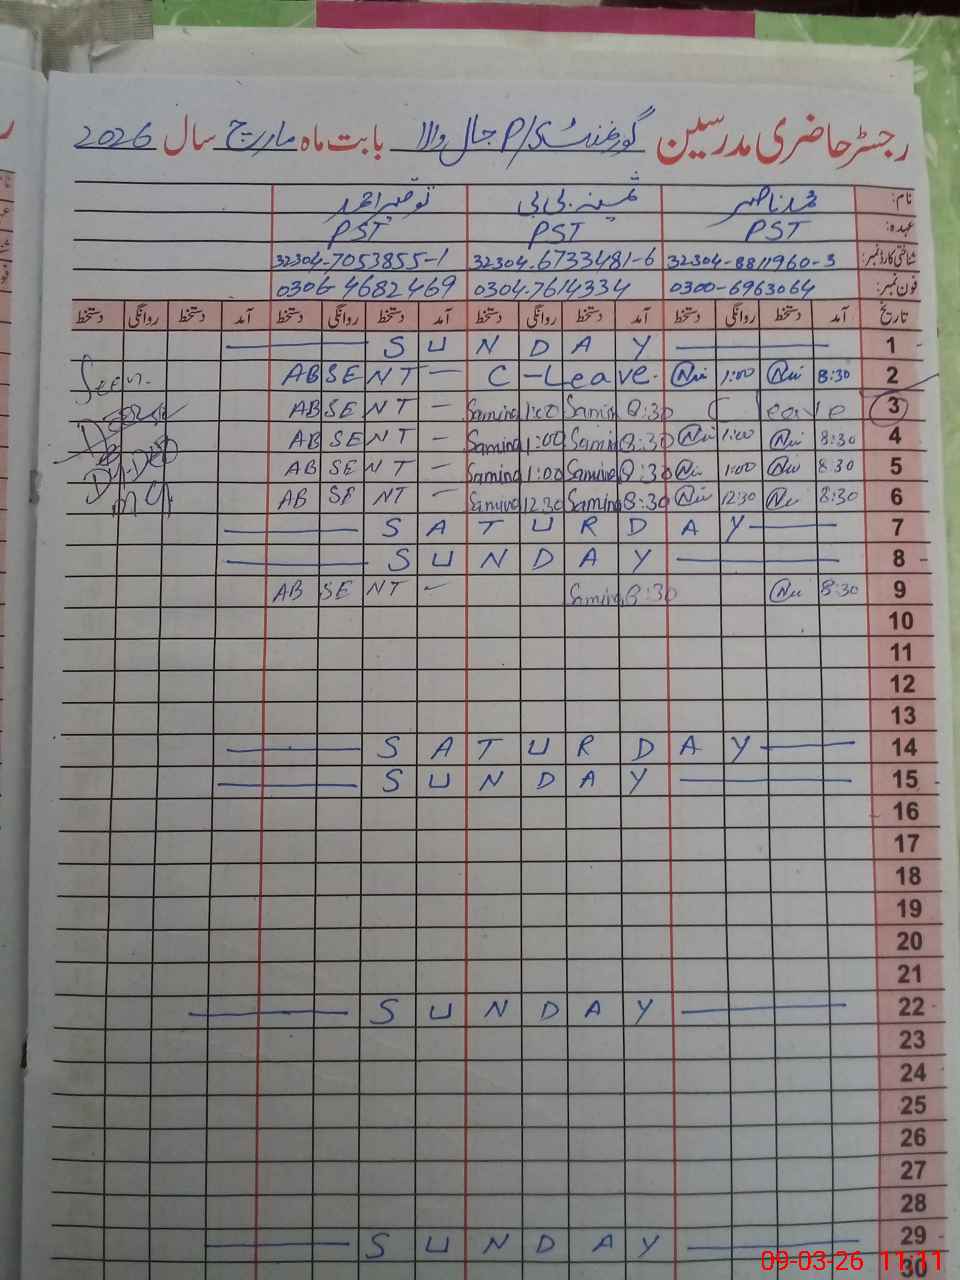 رجسٹر حاضری مدرسین گورنمنٹ P/S جال والا بابت ماہ مارچ سال 2026
نام: محمد ناصر ثمینہ بی بی توصیر احمد
عہدہ: PST PST PST
شناختی کارڈ نمبر: 32304-8811960-3 32304-6733481-6 32304-7053855-1
فون نمبر: 0300-6963064 0304-7614334 0306-4682469
تاریخ آمد دستخط روانگی دستخط آمد دستخط روانگی دستخط آمد دستخط روانگی دستخط آمد دستخط روانگی دستخط
SUNDAY 1
Seen. ABSENT - C-Leave. 1:00 8:30 2
ABSENT - Samina 1:00 Samina 8:30 C Leave 3
ABSENT - Samina 1:00 Samina 8:30 1:00 8:30 4
ABSENT - Samina 1:00 Samina 8:30 1:00 8:30 5
ABSENT Samina 12:30 Samina 8:30 12:30 8:30 6
SATURDAY 7
SUNDAY 8
ABSENT - Samina 8:30 8:30 9
10
11
12
13
SATURDAY 14
SUNDAY 15
16
17
18
19
20
21
SUNDAY 22
23
24
25
26
27
28
SUNDAY 29
30
09-03-26 11:11